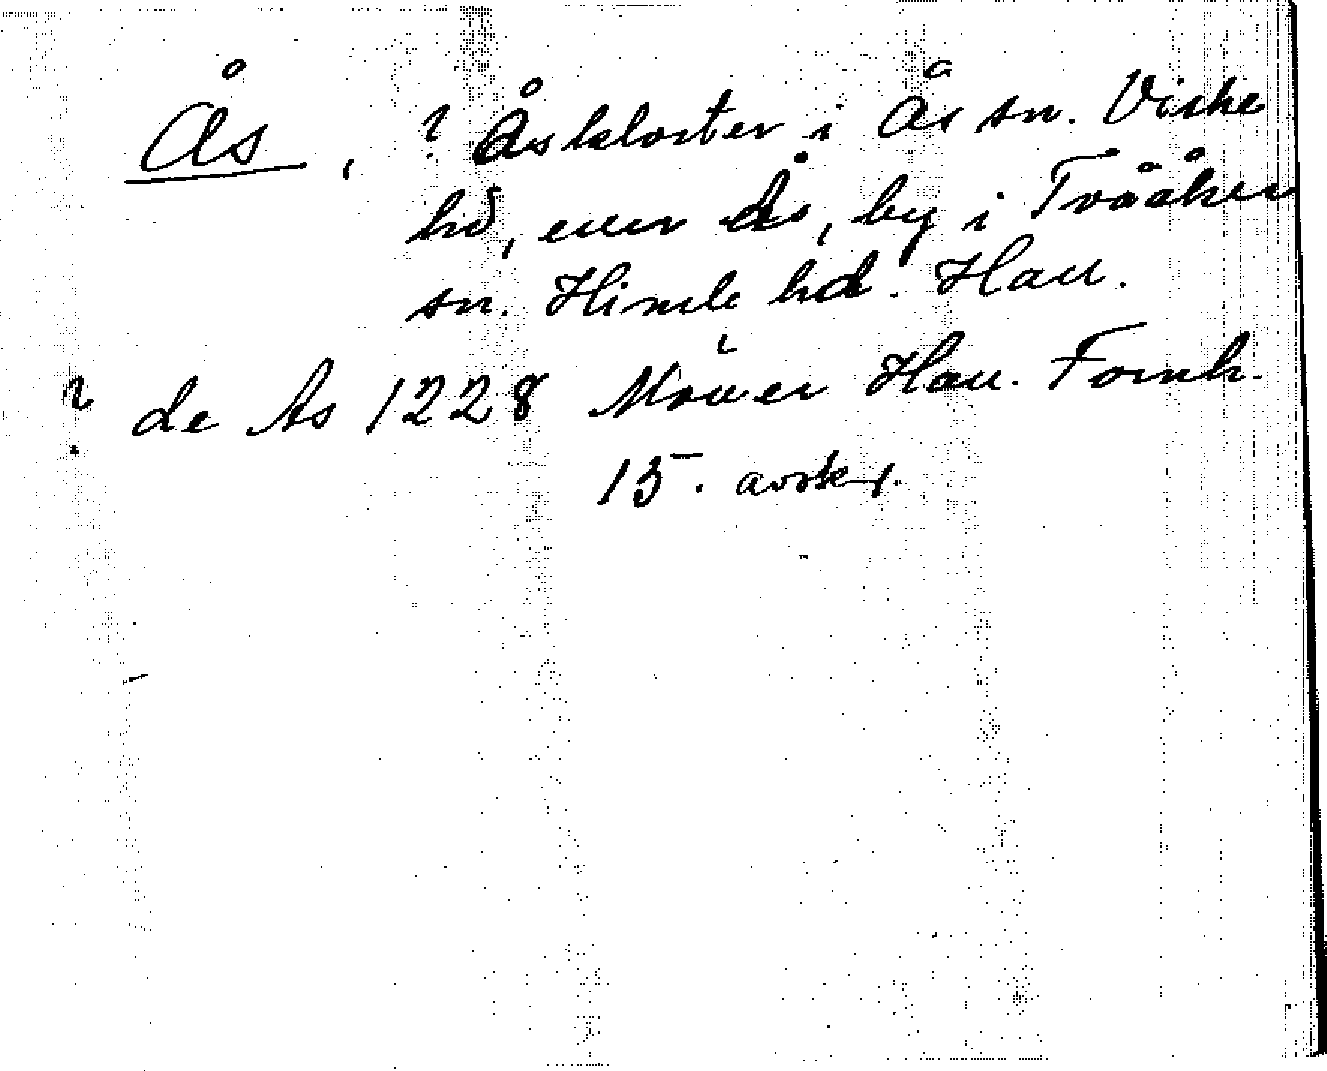 Ås, ? Åskloster i Ås sn. Viske
hd, eller Ås, by i Tvååker
sn. Himle hd. Hall.
? de As 1228 i Möller Hall. Fornh.
15. avskr.